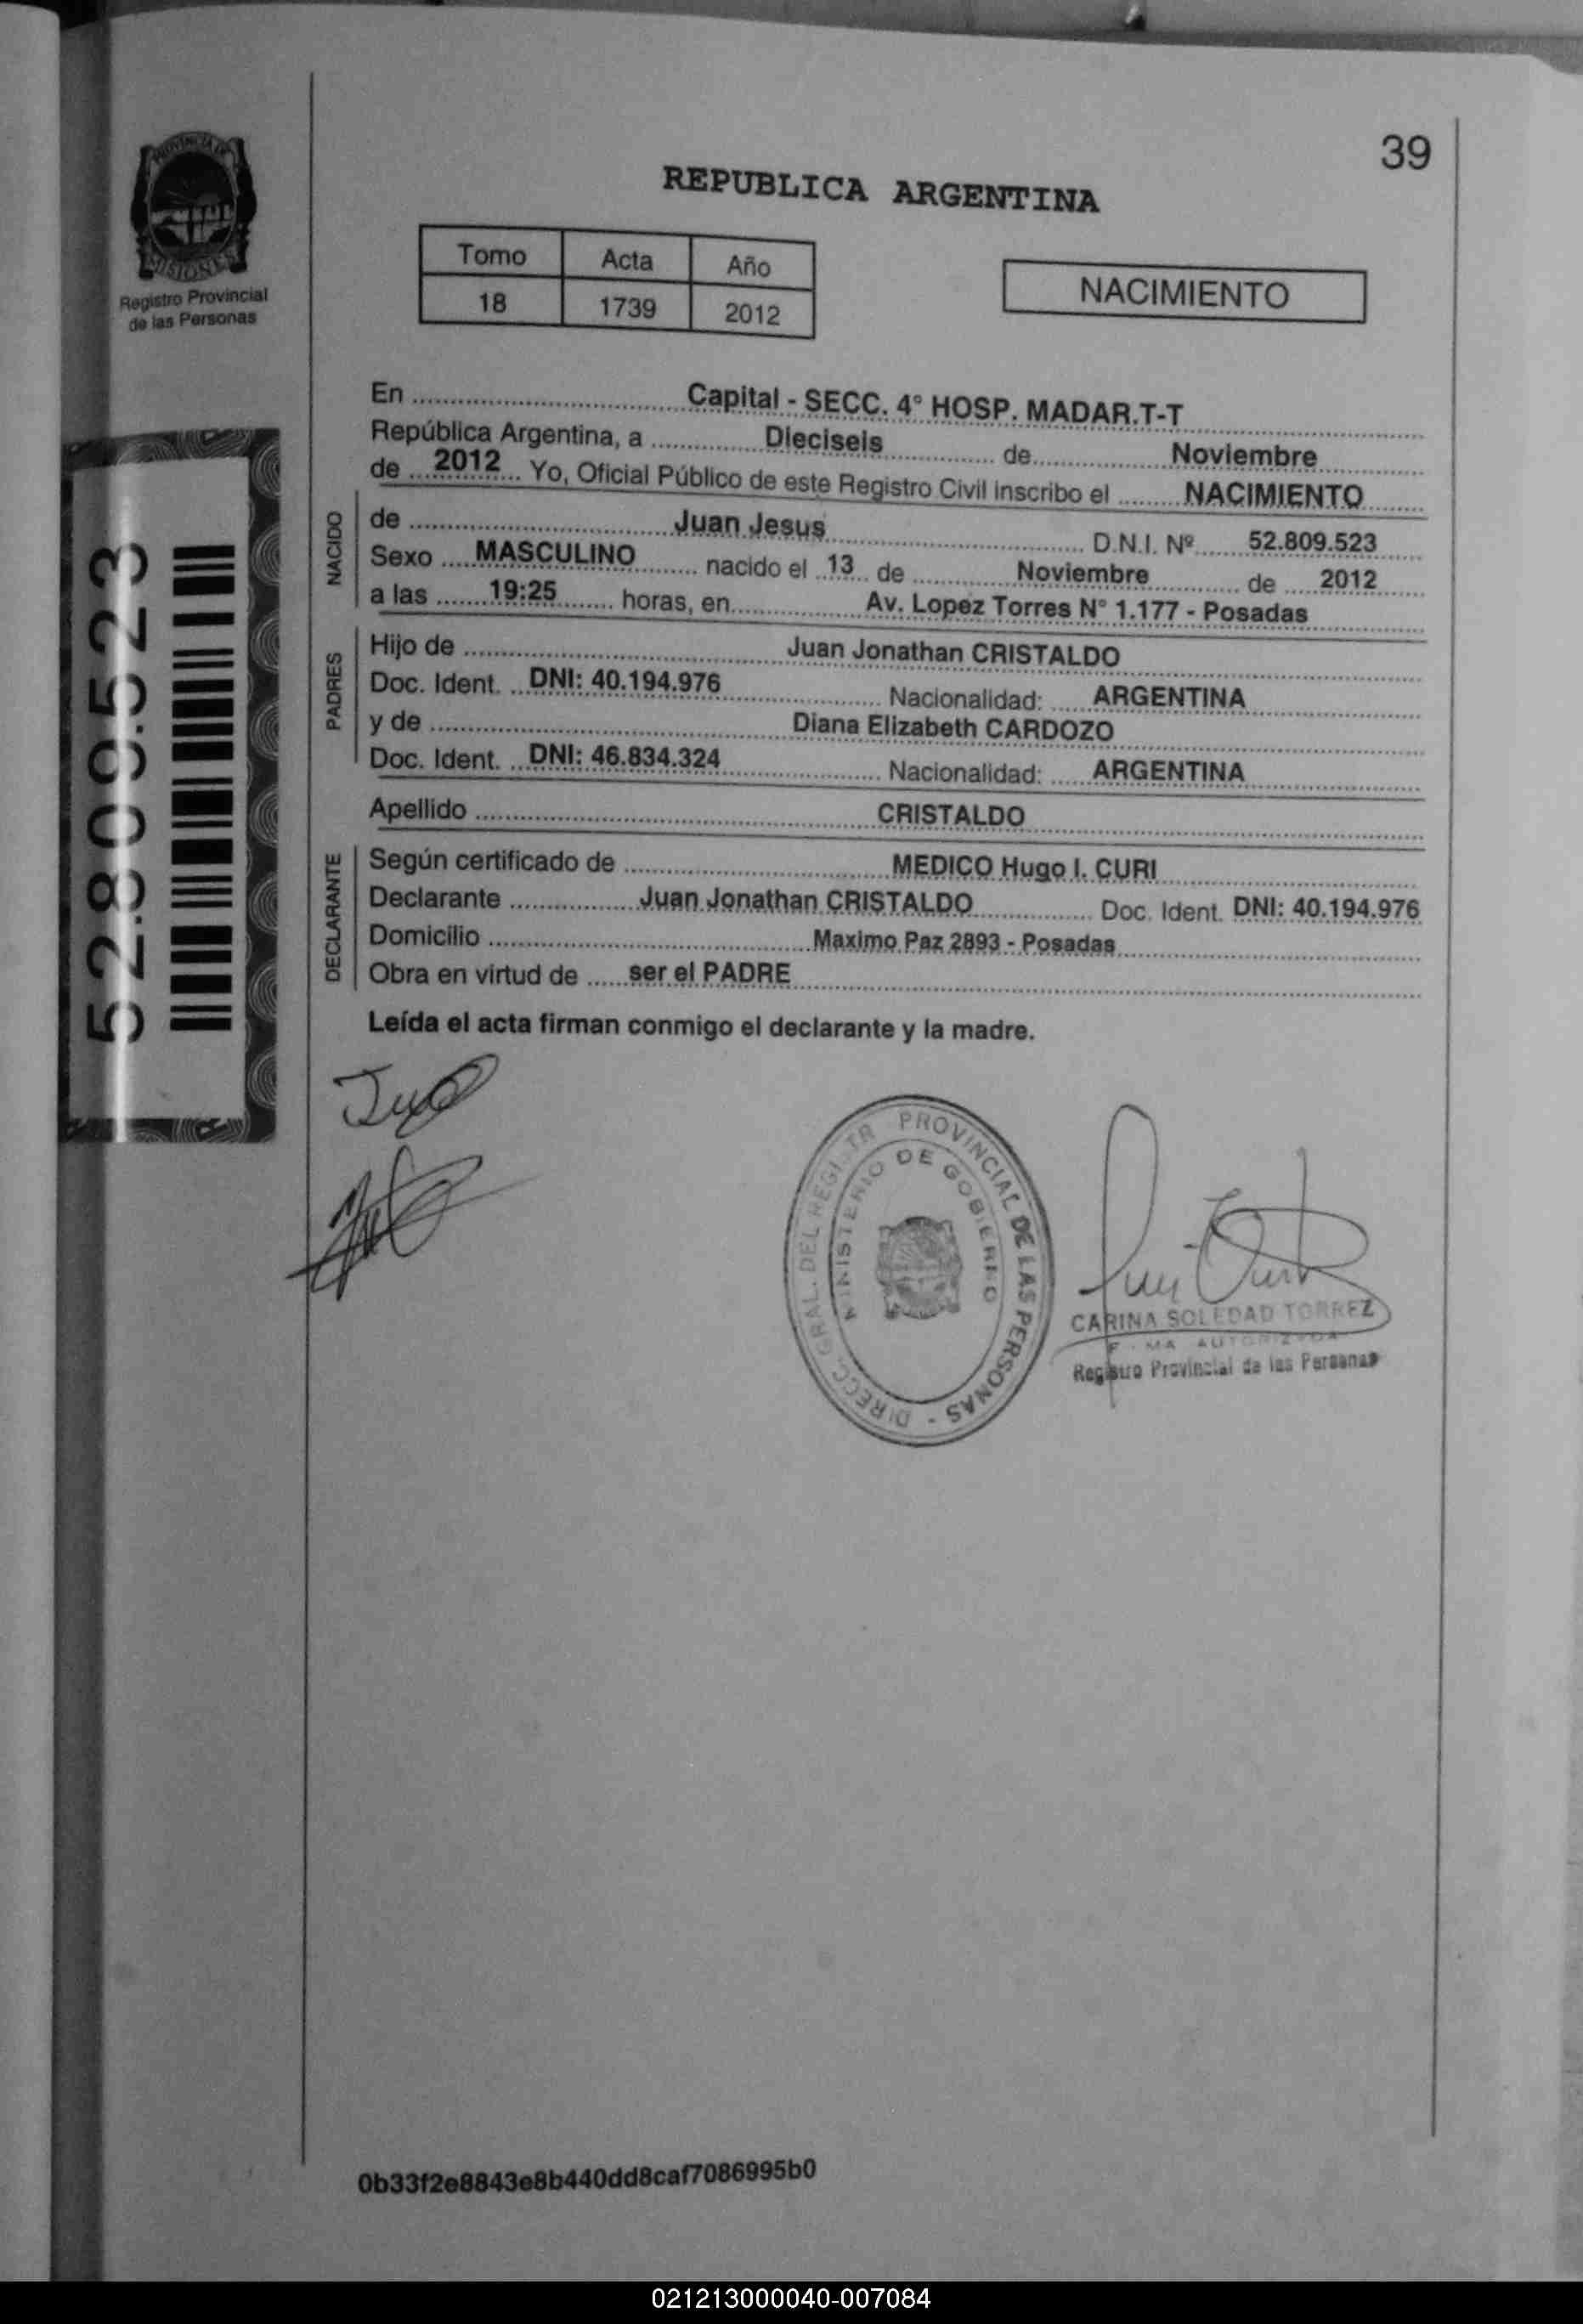 39
REPUBLICA ARGENTINA
PROVINCIA DE
MISIONES
Registro Provincial
de las Personas
Tomo Acta Año
18 1739 2012
NACIMIENTO
En Capital - SECC. 4° HOSP. MADAR.T-T
República Argentina, a Dieciseis de Noviembre
de 2012 Yo, Oficial Público de este Registro Civil inscribo el NACIMIENTO
NACIDO
de Juan Jesus D.N.I. Nº 52.809.523
Sexo MASCULINO nacido el 13 de Noviembre de 2012
a las 19:25 horas, en Av. Lopez Torres N° 1.177 - Posadas
PADRES
Hijo de Juan Jonathan CRISTALDO
Doc. Ident. DNI: 40.194.976 Nacionalidad: ARGENTINA
y de Diana Elizabeth CARDOZO
Doc. Ident. DNI: 46.834.324 Nacionalidad: ARGENTINA
Apellido CRISTALDO
DECLARANTE
Según certificado de MEDICO Hugo I. CURI
Declarante Juan Jonathan CRISTALDO Doc. Ident. DNI: 40.194.976
Domicilio Maximo Paz 2893 - Posadas
Obra en virtud de ser el PADRE
Leída el acta firman conmigo el declarante y la madre.
52.809.523
DIRECC. GRAL. DEL REGISTR PROVINCIAL DE LAS PERSONAS -
MINISTERIO DE GOBIERNO
CARINA SOLEDAD TORREZ
FIRMA AUTORIZADA
Registro Provincial de las Personas
0b33f2e8843e8b440dd8caf7086995b0
021213000040-007084